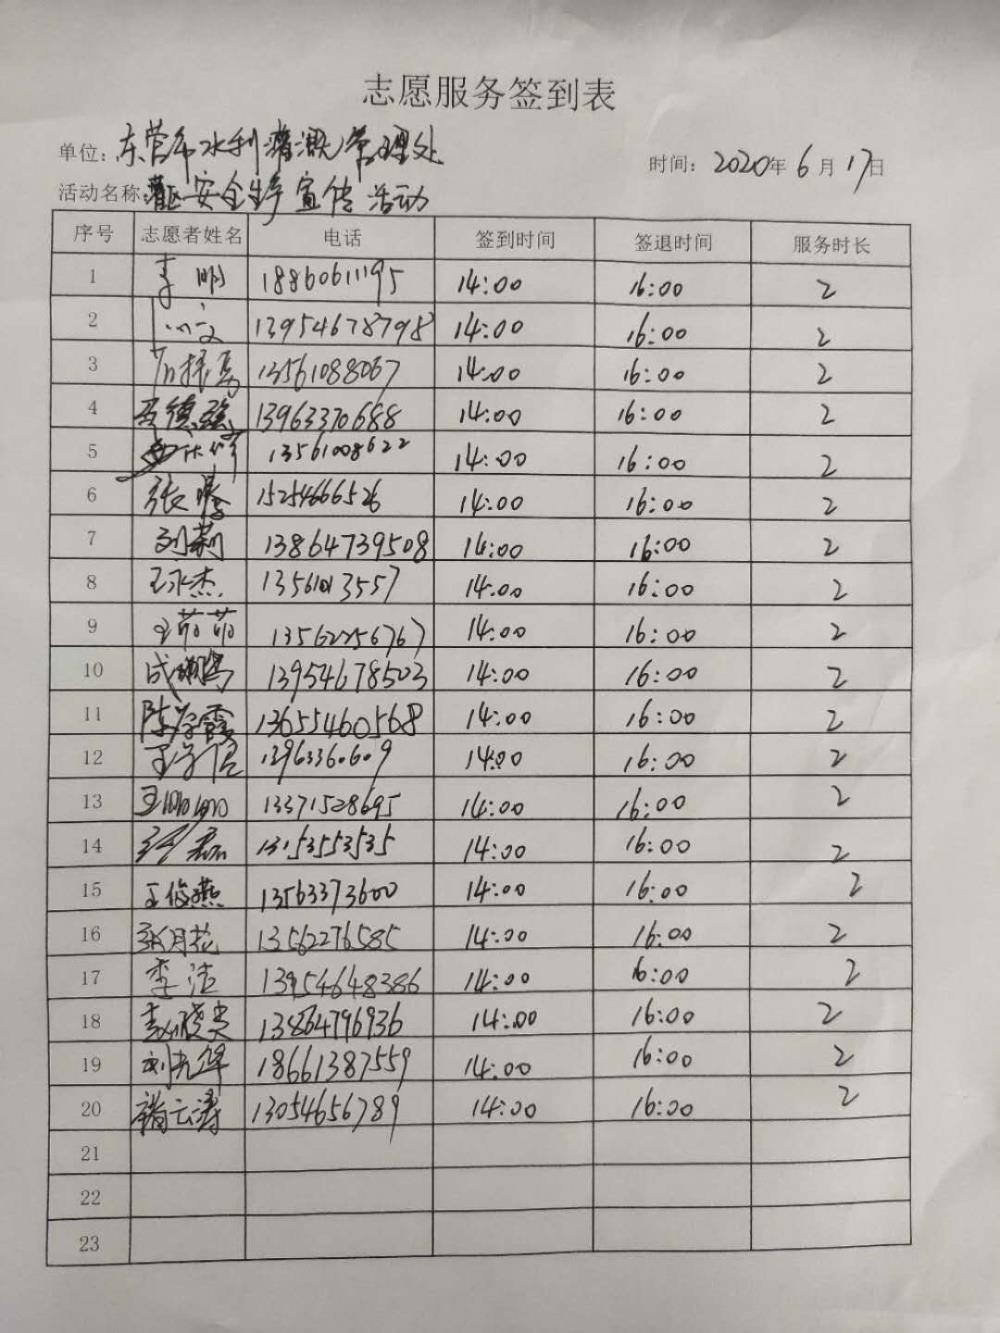 志愿服务签到表
单位：东营市水利灌溉管理处
时间：2020年6月17日
活动名称：灌区安全生产宣传活动
序号 志愿者姓名 电话 签到时间 签退时间 服务时长
1 李明 18860611195 14:00 16:00 2
2 13954678798 14:00 16:00 2
3 13561088067 14:00 16:00 2
4 13963370688 14:00 16:00 2
5 13561008622 14:00 16:00 2
6 15254666526 14:00 16:00 2
7 刘莉 13864739508 14:00 16:00 2
8 王永杰 14:00 16:00 2
9 王萌萌 13562256767 14:00 16:00 2
10 13954678503 14:00 16:00 2
11 陈学霞 13655460568 14:00 16:00 2
12 14:00 16:00 2
13 13371528695 14:00 16:00 2
14 14:00 16:00 2
15 王俊燕 13563373600 14:00 16:00 2
16 张月花 13562276585 14:00 16:00 2
17 李洁 13954648386 14:00 16:00 2
18 13864796936 14:00 16:00 2
19 18661387559 14:00 16:00 2
20 褚云涛 13054656789 14:00 16:00 2
21
22
23